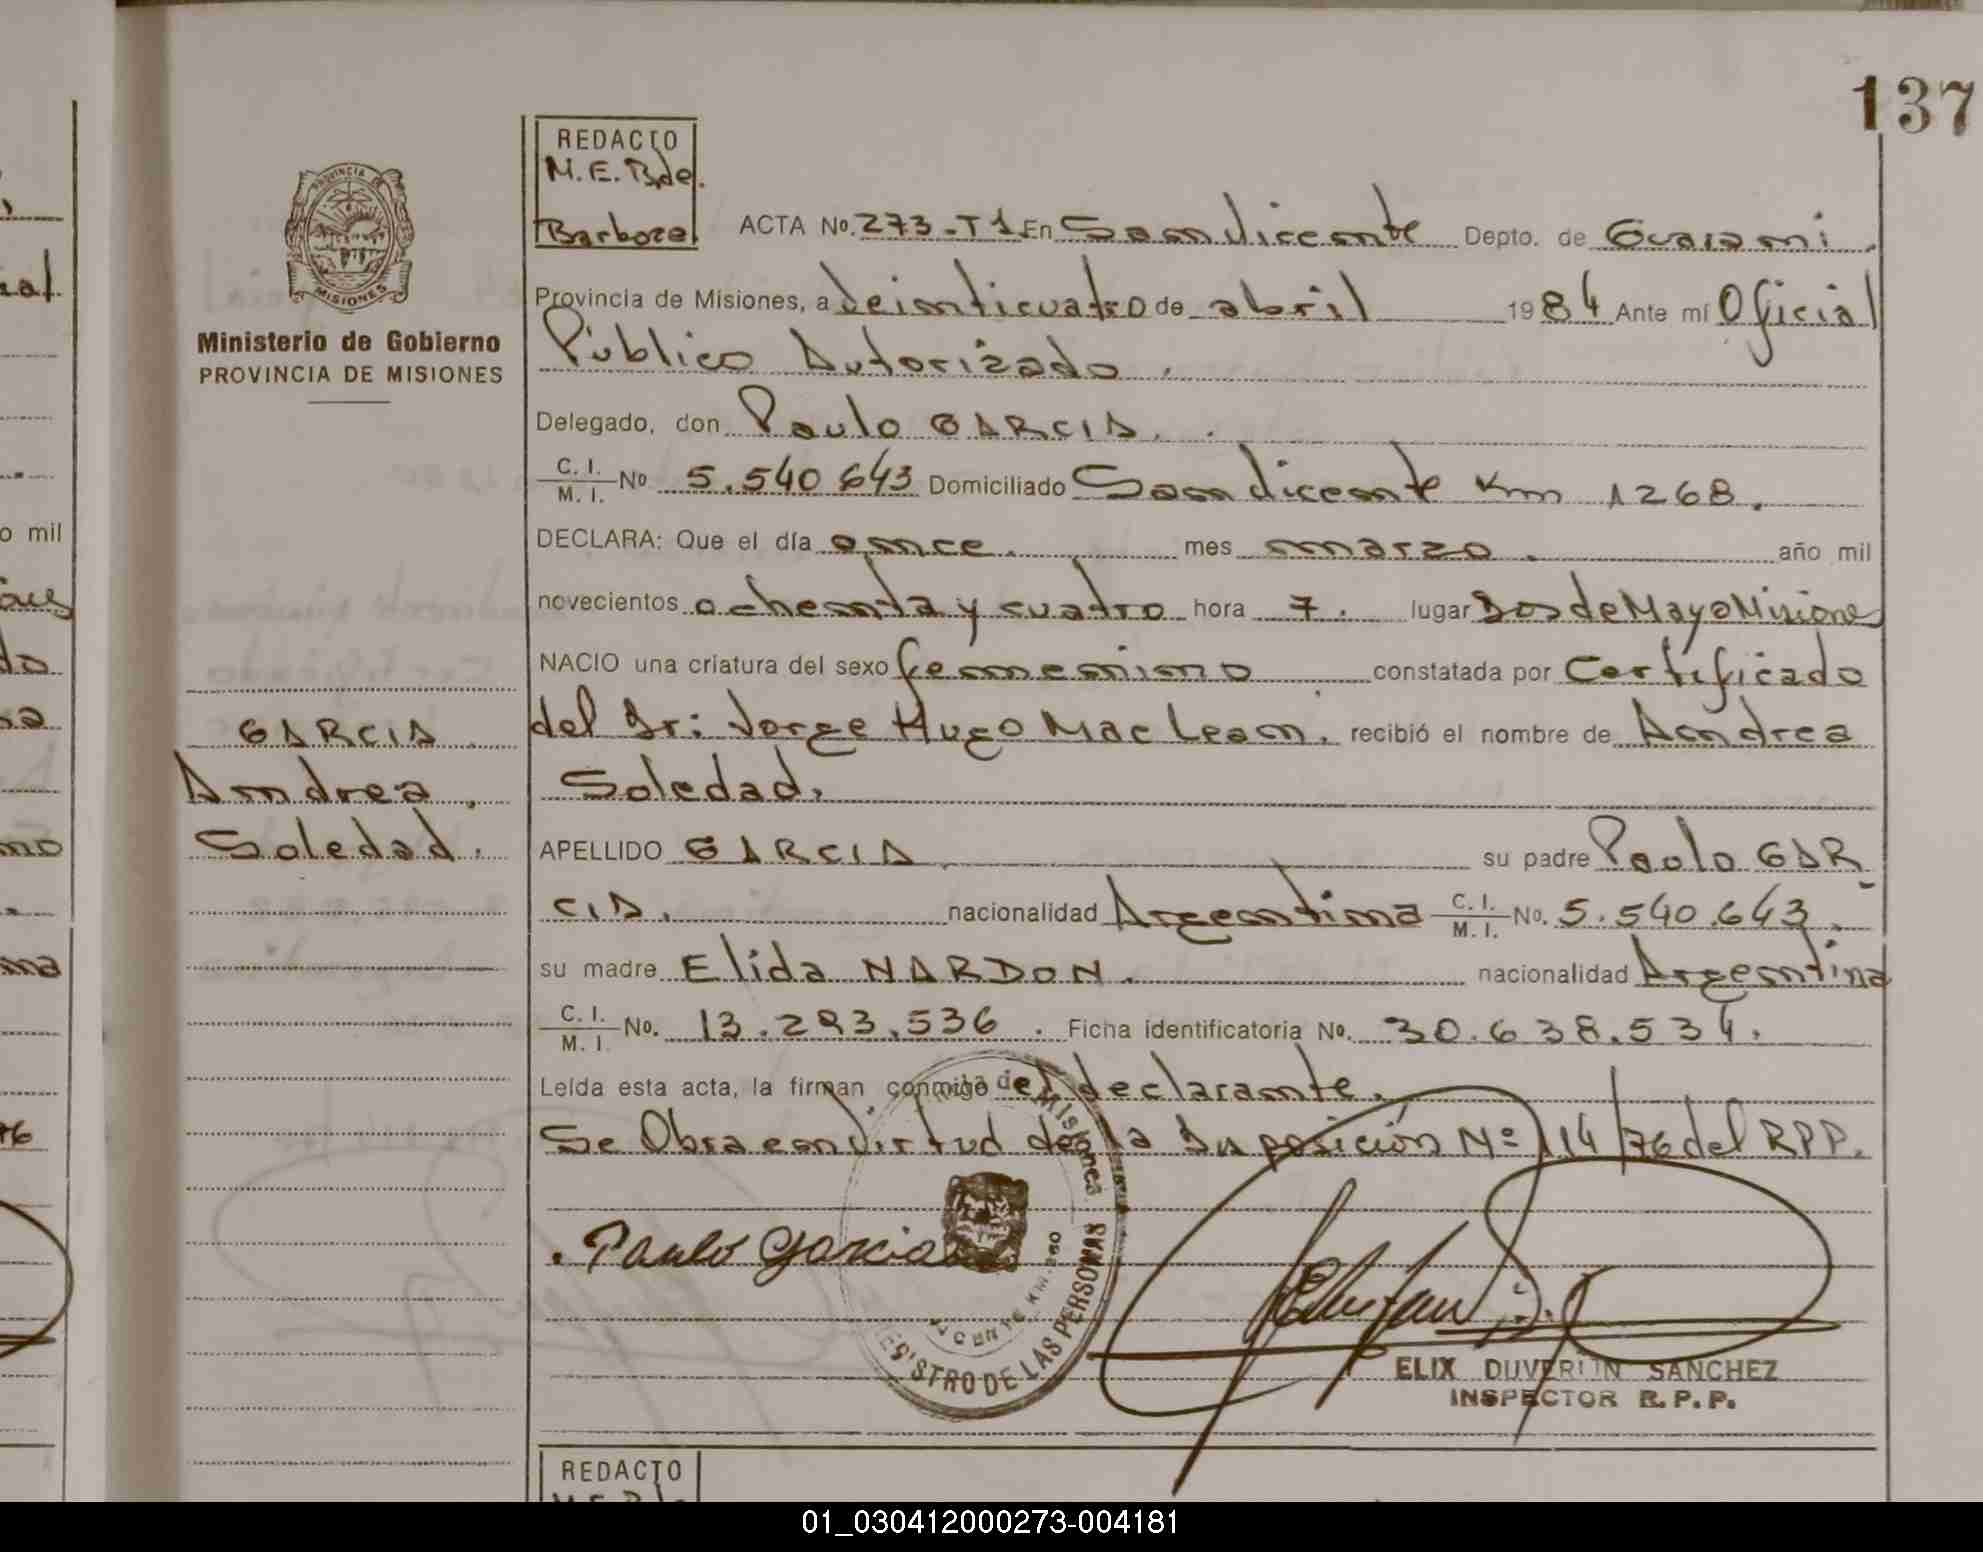 137
REDACTO
M. E. B. de.
Barboza
ACTA No. 273 - T1 En San Vicente Depto. de Guarani.
PROVINCIA DE
MISIONES
Ministerio de Gobierno
PROVINCIA DE MISIONES
Provincia de Misiones, a veinticuatro de abril 1984 Ante mí Oficial
Público Autorizado.
Delegado, don Paulo GARCIA.
C. I.
M. I. No 5.540 643 Domiciliado San Vicente Km 1268.
DECLARA: Que el día once. mes marzo. año mil
novecientos ochenta y cuatro hora 7. lugar Dos de Mayo Misiones
NACIO una criatura del sexo femenino constatada por Certificado
del Dr: Jorge Hugo Mac Lean. recibió el nombre de Andrea
Soledad.
GARCIA
Andrea
Soledad.
APELLIDO GARCIA su padre Paulo GAR
CIA. nacionalidad Argentina C. I.
M. I. No. 5.540.643.
su madre Elida NARDON. nacionalidad Argentina
C. I.
M. I. No. 13.293.536. Ficha identificatoria No. 30.638.534.
Leída esta acta, la firman conmigo el declarante.
Se Obra en virtud de la Disposición Nº 114/76 del RPP.
Paulo Garcia
de Misiones
REGISTRO DE LAS PERSONAS
VICENTE KM.
ELIX DUVERLIN SANCHEZ
INSPECTOR R. P. P.
REDACTO
01_030412000273-004181